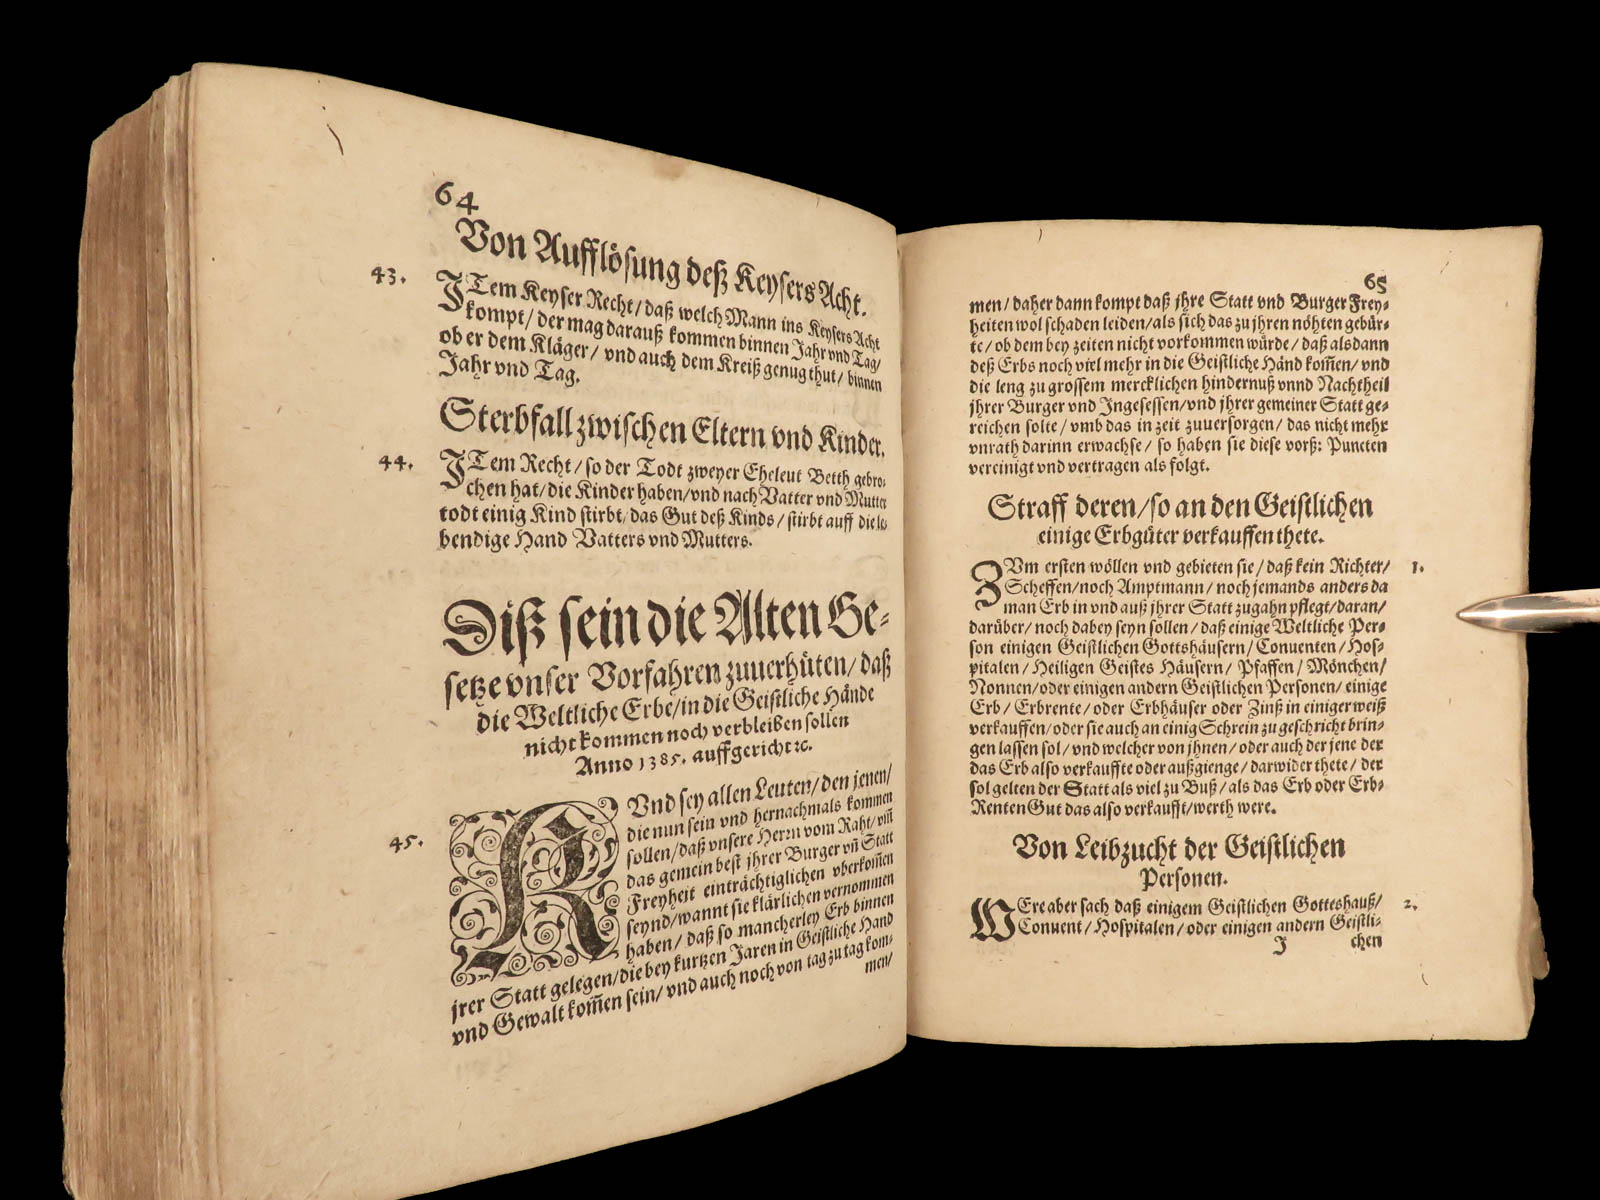 64
Von Aufflösung deß Keysers Acht.
43.
ITem Keyser Recht/ daß welch Mann ins Keysers Acht
kompt/ der mag darauß kommen binnen Jahr vnd Tag/
ob er dem Kläger/ vnd auch dem Kreiß genug thut/ binnen
Jahr vnd Tag.
Sterbfall zwischen Eltern vnd Kinder.
44.
ITem Recht/ so der Todt zweyer Eheleut Betth gebro-
chen hat/ die Kinder haben/ vnd nach Vatter vnd Mutter
todt einig Kind stirbt/ das Gut deß Kinds/ stirbt auff die le-
bendige Hand Vatters vnd Mutters.
Diß sein die Alten Ge-
setze vnser Vorfahren zuuerhüten/ daß
die Weltliche Erbe/ in die Geistliche Hände
nicht kommen noch verbleiben sollen
Anno 1385. auffgericht ꝛc.
45.
KVnd sey allen Leuten/ den jenen/
die nun sein vnd hernachmals kommen
sollen/ daß vnsere Herrn vom Raht/ vm̃
das gemein best jhrer Burger vñ Statt
Freyheit einträchtiglichen vberkom̃en
seynd/ wannt sie klärlichen vernommen
haben/ daß so mancherley Erb binnen
jrer Statt gelegen/ die bey kurtzen Jaren in Geistliche Hand
vnd Gewalt kom̃en sein/ vnd auch noch von tag zu tag kom-
men/
65
men/ daher dann kompt daß jhre Statt vnd Burger Frey-
heiten wol schaden leiden/ als sich das zu jhren nöhten gebür-
te/ ob dem bey zeiten nicht vorkommen würde/ daß alsdann
deß Erbs noch viel mehr in die Geistliche Händ kom̃en/ vnd
die leng zu grossem mercklichen hindernuß vnnd Nachtheil
jhrer Burger vnd Ingesessen/ vnd jhrer gemeiner Statt ge-
reichen solte/ vmb das in zeit zuuersorgen/ das nicht mehr
vnrath darinn erwachse/ so haben sie diese vorß: Puncten
vereinigt vnd vertragen als folgt.
Straff deren/ so an den Geistlichen
einige Erbgüter verkauffen thete.
ZVm ersten wöllen vnd gebieten sie/ daß kein Richter/
1.
Scheffen/ noch Amptmann/ noch jemands anders da
man Erb in vnd auß jhrer Statt zugahn pflegt/ daran/
darüber/ noch dabey seyn sollen/ daß einige Weltliche Per-
son einigen Geistlichen Gottshäusern/ Conuenten/ Hos-
pitalen/ Heiligen Geistes Häusern/ Pfaffen/ Mönchen/
Nonnen/ oder einigen andern Geistlichen Personen/ einige
Erb/ Erbrente/ oder Erbhäuser oder Zinß in einiger weiß
verkauffen/ oder sie auch an einig Schrein zu geschricht brin-
gen lassen sol/ vnd welcher von jhnen/ oder auch der jene der
das Erb also verkauffte oder außgienge/ darwider thete/ der
sol gelten der Statt als viel zu Buß/ als das Erb oder Erb-
Renten Gut das also verkaufft/ werth were.
Von Leibzucht der Geistlichen
Personen.
WEre aber sach daß einigem Geistlichen Gotteshauß/
2.
Conuent/ Hospitalen/ oder einigen andern Geistli-
J
chen